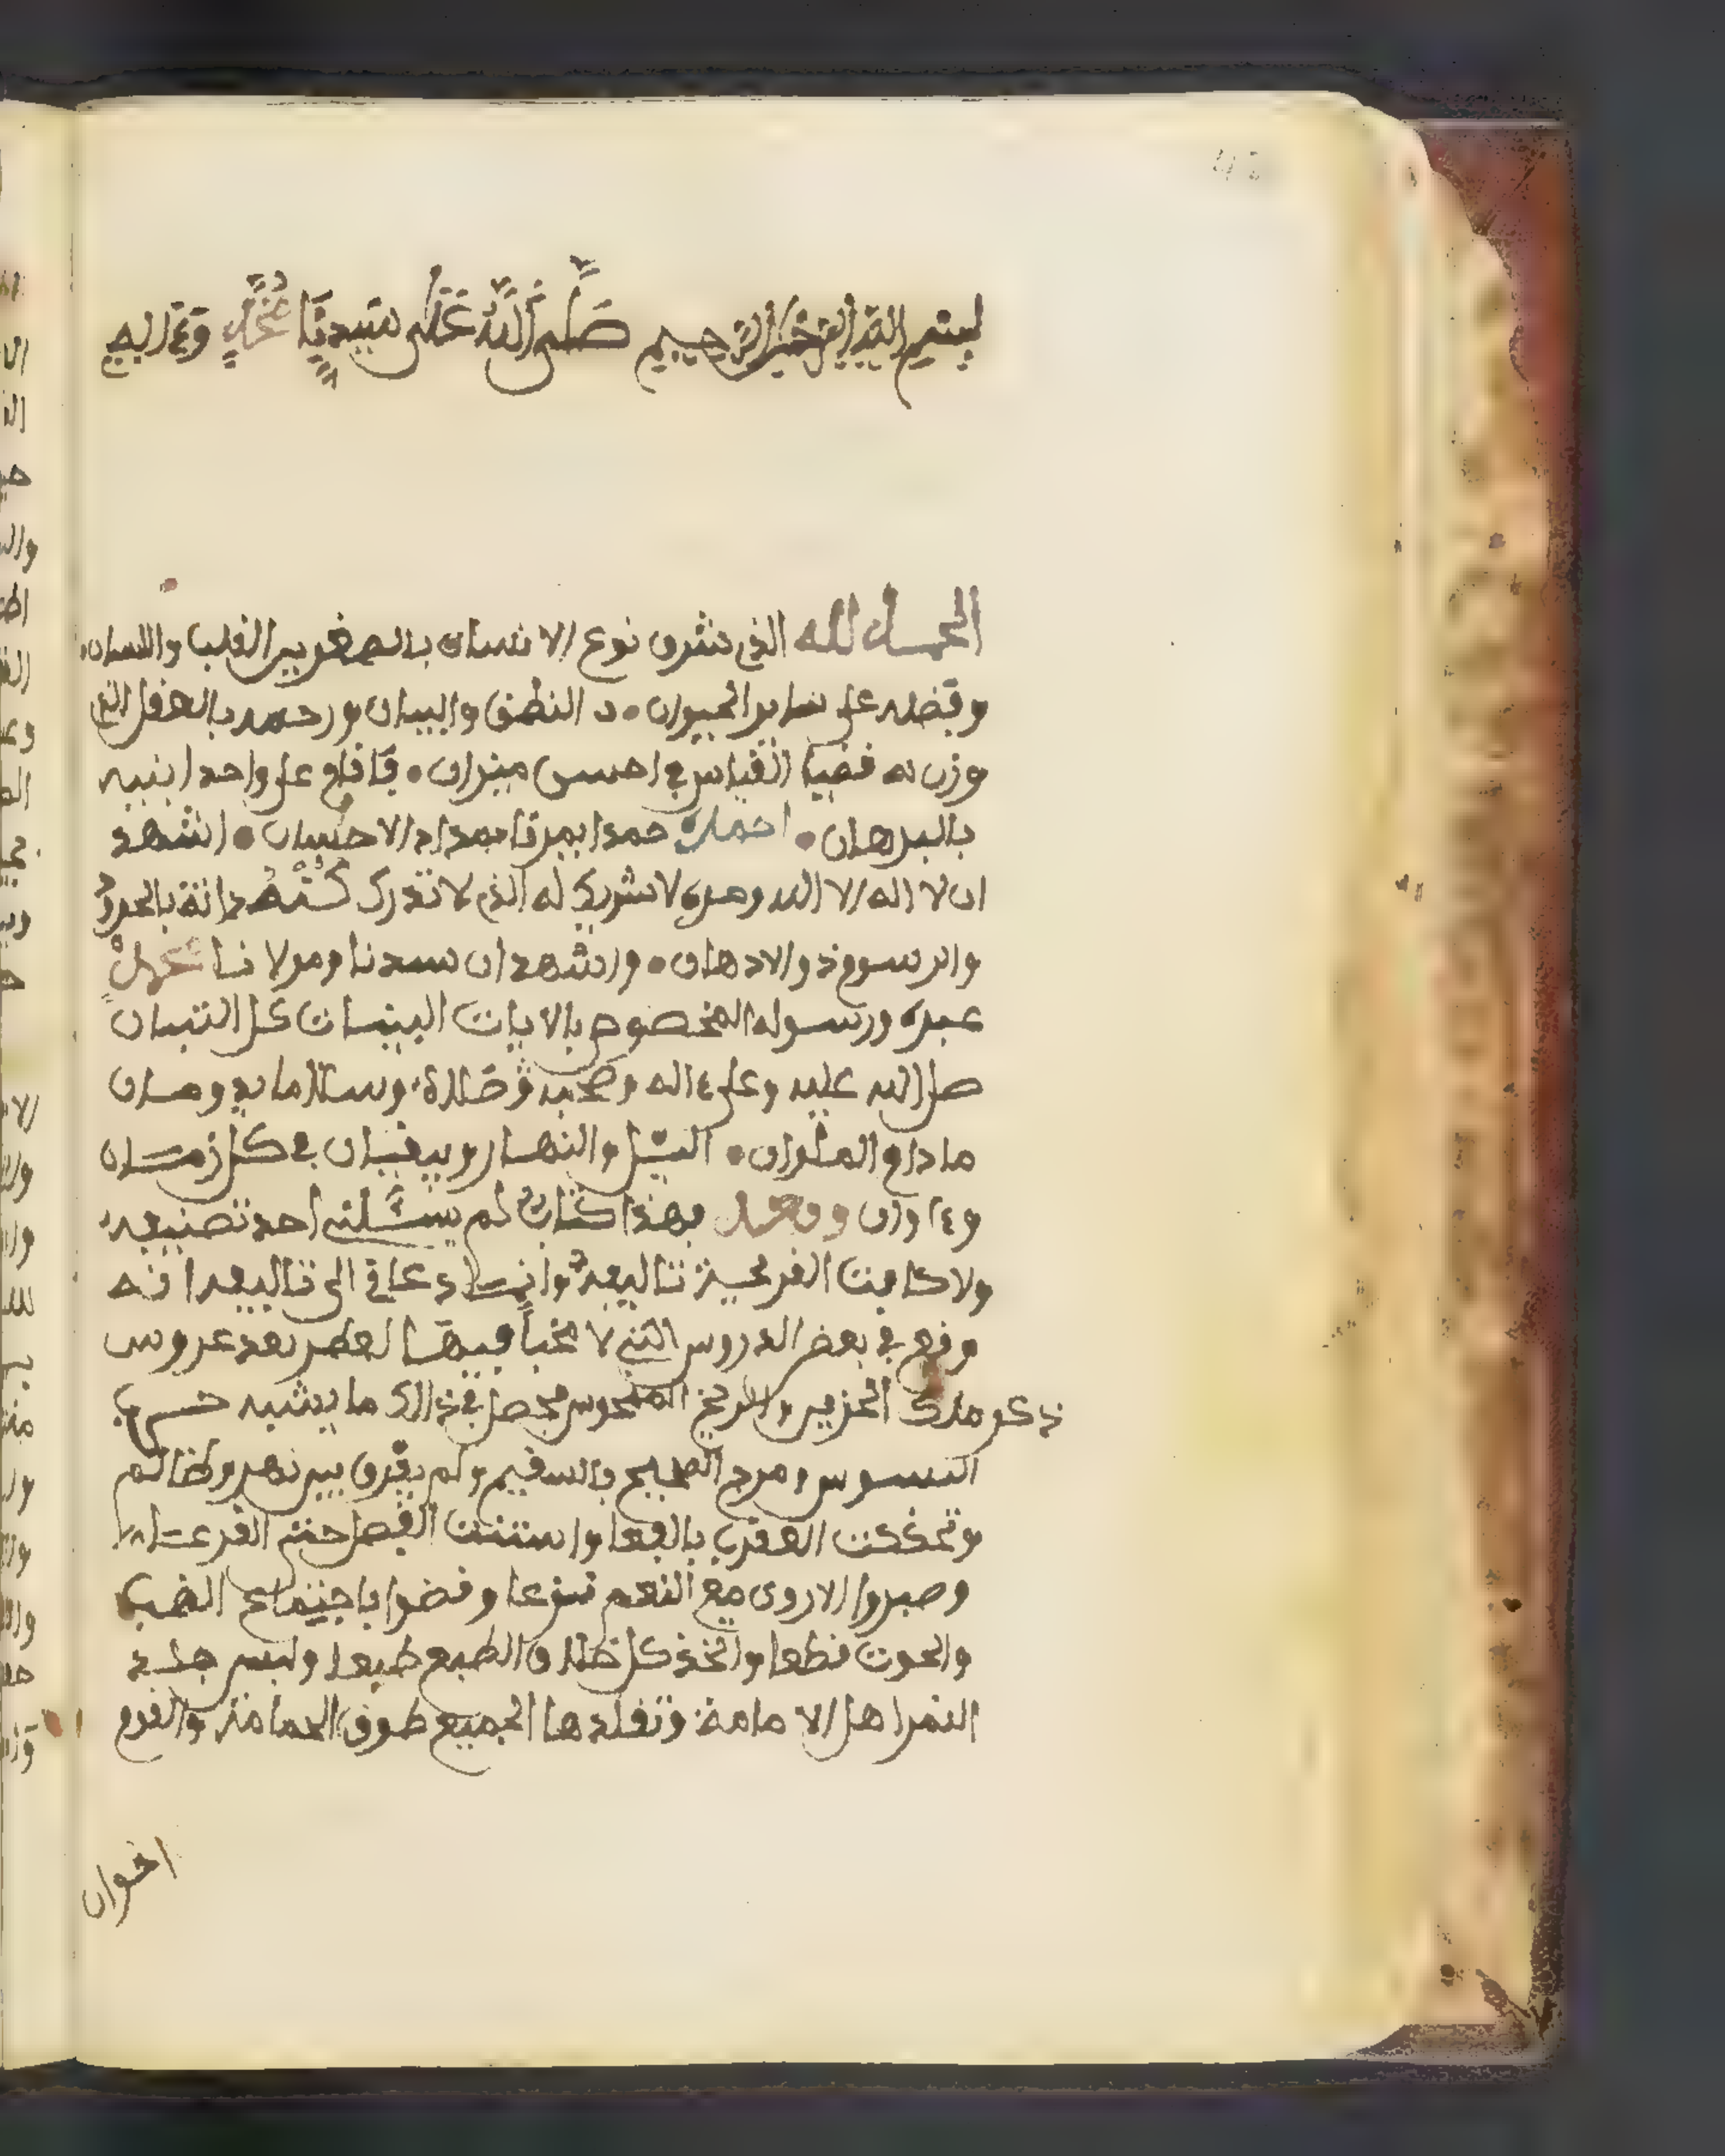 بسم الله الرحمن الرحيم صلى الله على سيدنا محمد وءاله
الحمد لله الذي شرف نوع الانسان بالاصغرين القلب واللسان
وفضله على ساير الحيوان • النطق والبيان ورجحه بالعقل الذي
وزن به قضايا القياس في احسن ميزان • فاقام على واحدانيته
بالبرهان • احمده حمدا بمدنا بمداد الاحسان • اشهد
ان لا اله الا الله وحده لا شريك له الذي لا تدرك كنه ذاته بالحدود
والرسوم ذو الاذهان • واشهد ان سيدنا ومولانا محمد
عبده ورسوله المخصوص بالايات البينات كل التبيان
صلى الله عليه وعلى ءاله وصحبه صلاة وسلاما
ما دام الملوان • اليل والنهار ويبقيان في كل زمان
وءاوان وبعد فهذا كتاب لم يسئلني احد تصنيفه
ولا كلفت القريحة تاليفه وانما دعاني الى تاليفه انه
وقع في بعض الدروس التي لا مخبأ فيها لعطر بعد عروس
ذكر مالك الحزين والذيخ المنحوس فحصل في ذالك ما يشبه حرب
البسوس ومزج الصحيح بالسقيم ولم يفرق بين نسر وظليم
وتحككت العقرب بالافعا واستنت الفصال حتى القرعا
وصيروا الاروى مع النعم ترعا وقضوا باجتماع الضب
والحوت قطعا واتخذ كل اخلاق الضبع طبعا ولبس جلد
النمر اهل الامامة وتقلدها الجميع طوق الحمامة والقوم
اخوان